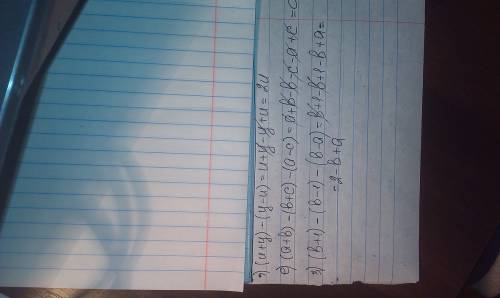 (u+y)-(y-u)=u+y-y+u=2u
e) (a+b)-(b+c)-(a-c)=a+b-b-c-a+c=0
3) (b+1)-(b-1)-(b-a)=b+1-b+1-b+a=
=2-b+a